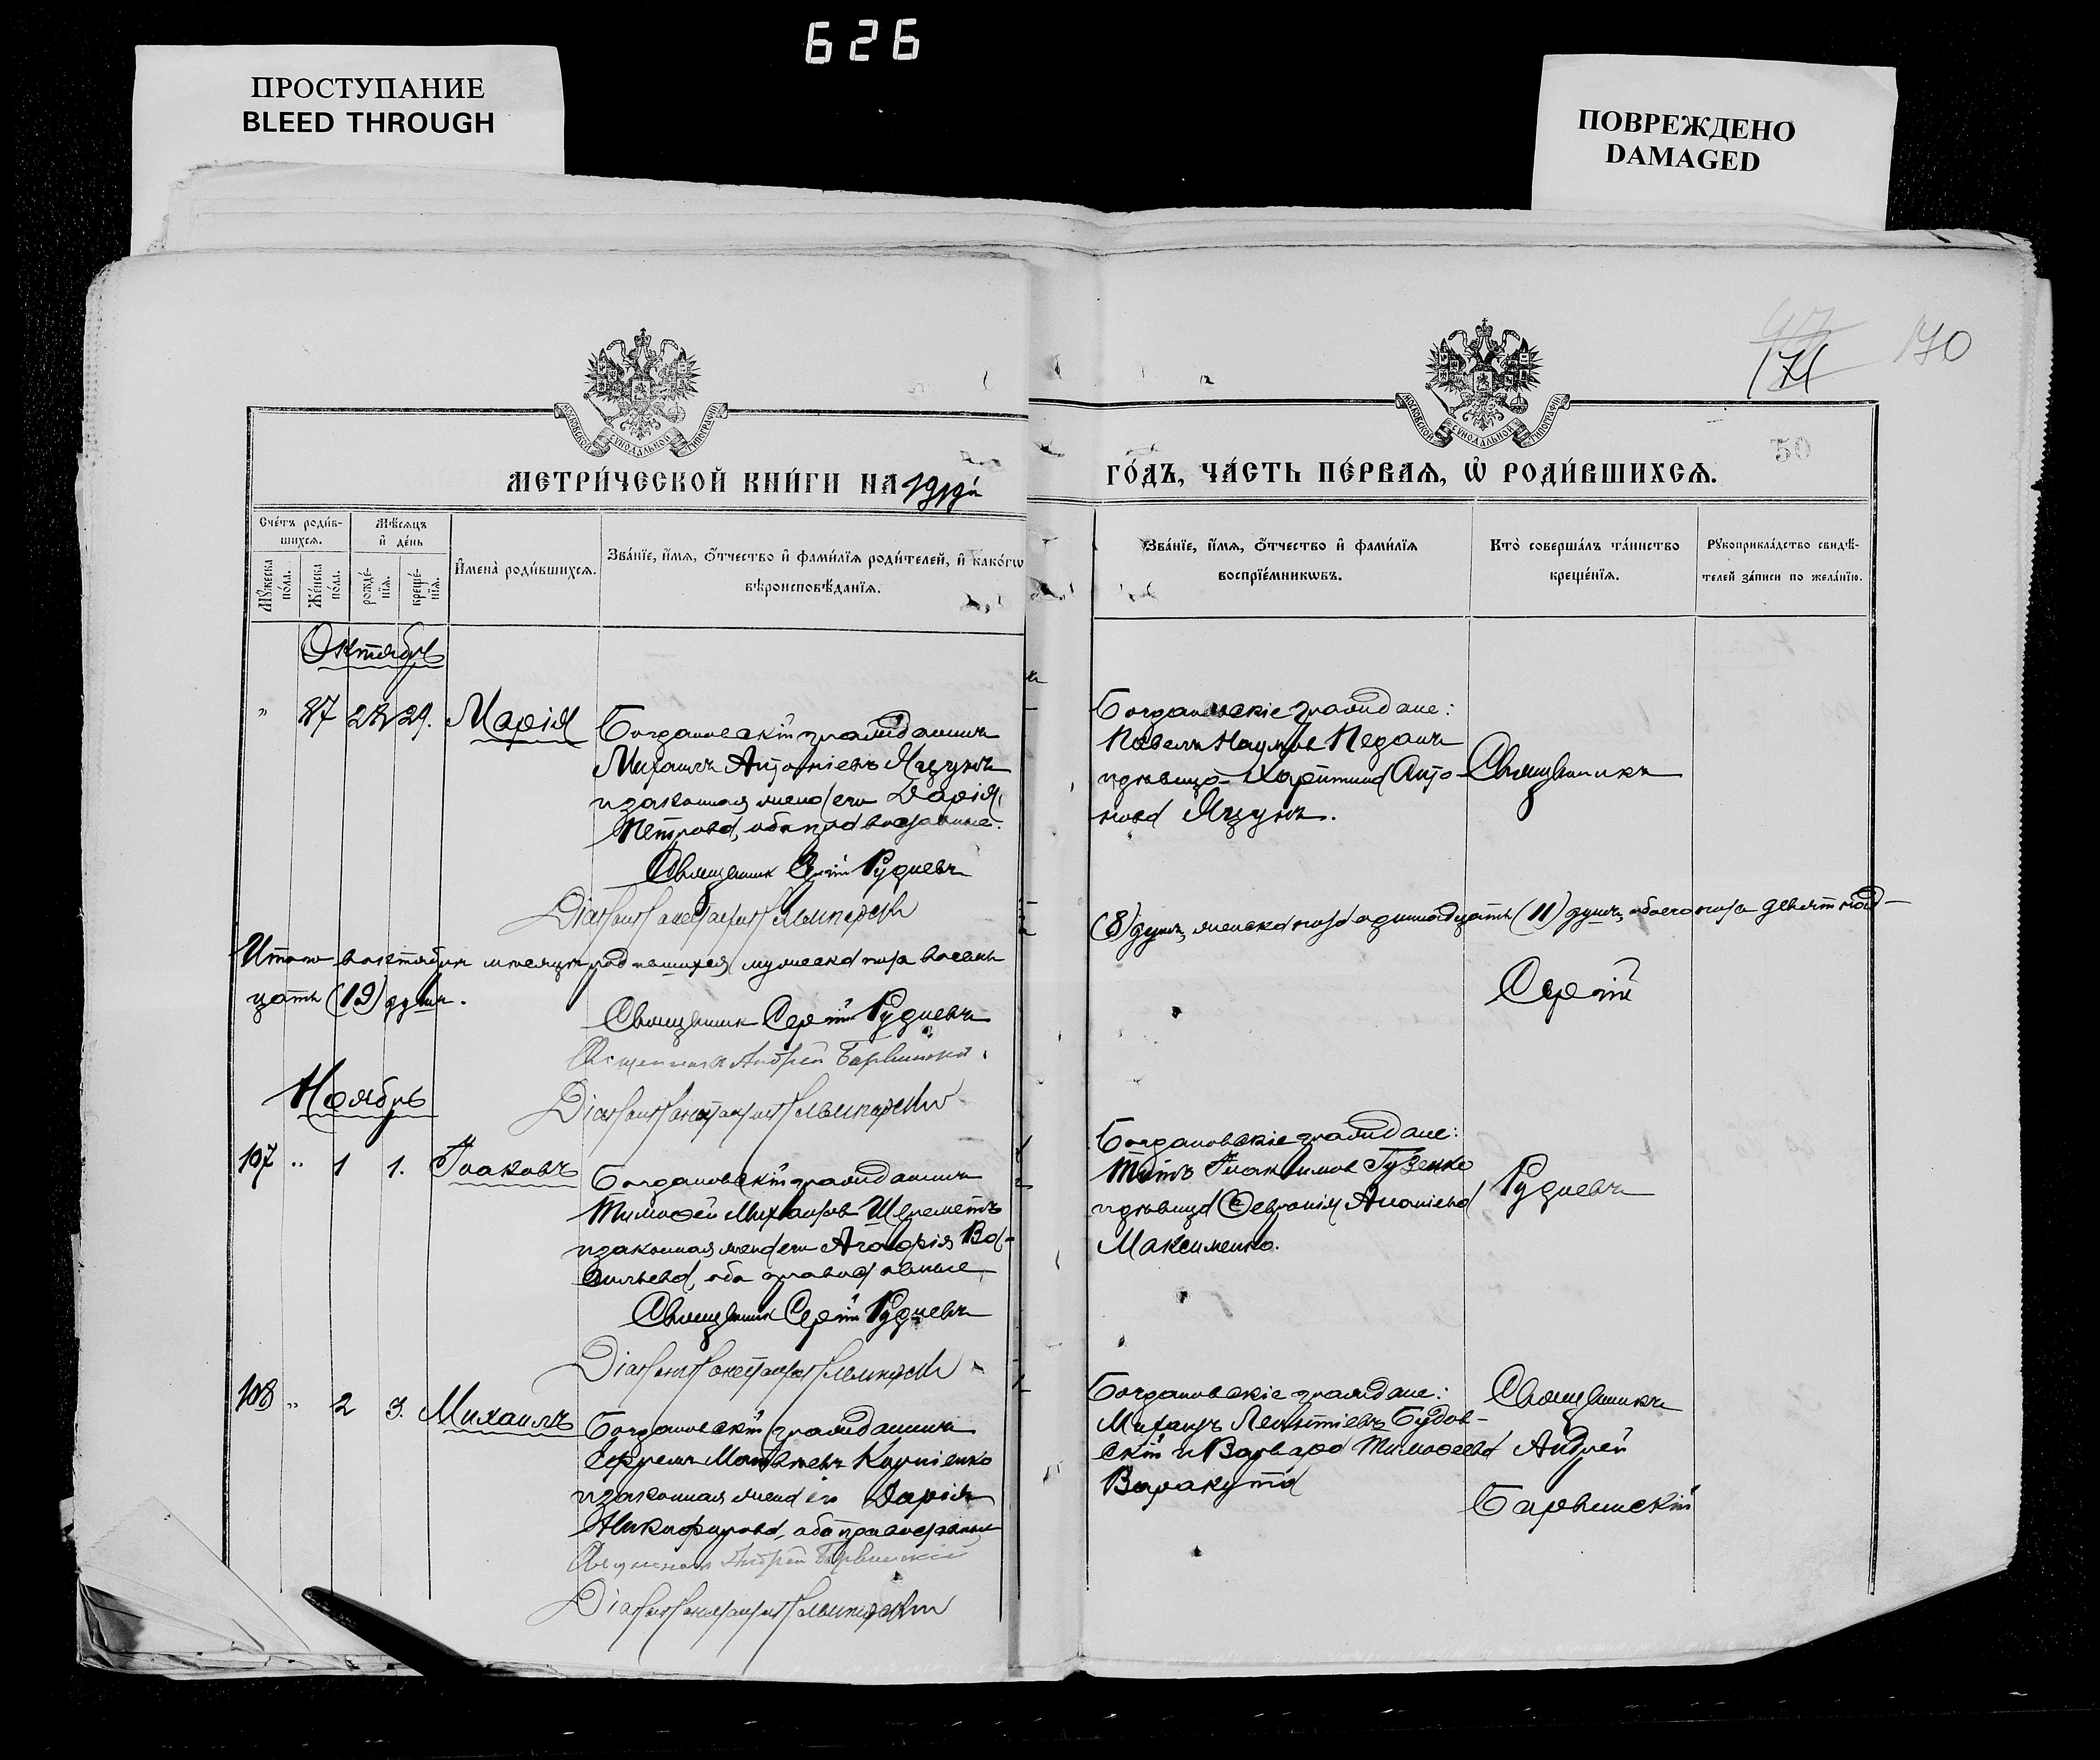 626
ПРОСТУПАНИЕ
BLEED THROUGH
ПОВРЕЖДЕНО
DAMAGED
171
170
50
МОСКОВСКОЙ СѴНОДАЛЬНОЙ ТИПОГРАФІИ
МОСКОВСКОЙ СѴНОДАЛЬНОЙ ТИПОГРАФІИ
МЕТРИ́ЧЕСКОЙ КНИ́ГИ НА
ГО́ДЪ, ЧА́СТЬ ПЕ́РВАѦ, Ѡ҆ РОДИ́ВШИХСѦ.
Сче́тъ роди́в-
шихсѧ.
Мѣ́сѧцъ
и҆ де́нь
Мꙋ́жеска
по́ла.
Же́нска
по́ла.
рожде́-
нїѧ.
креще́-
нїѧ.
И҆мена̀ роди́вшихсѧ.
Зва́нїе, и҆́мѧ, ѻ҆́тчество и҆ фами́лїѧ роди́телей, и҆ како́гѡ
вѣроисповѣ́данїѧ.
Зва́нїе, и҆́мѧ, ѻ҆́тчество и҆ фами́лїѧ
воспрїе́мникѡвъ.
Кто̀ соверша́лъ та́инство
креще́нїѧ.
Рꙋкоприкла́дство свидѣ́-
телей за́писи по жела́нїю.
Октябрь
" 87 28 29. Марія
Богдановскій гражданинъ
Михаилъ Антоніевъ Яцунъ
и законная жена его Дарія
Петрова, оба православные.
Священник Сергій Рудневъ
Богдановскіе граждане:
Павелъ Наумовъ
и дѣвица Харитина Анто-
нова Яцунъ.
Священникъ
Итого в октябрѣ мѣсяцѣ родившихся мужеска пола восемь
(8) душъ, женска пола одиннадцать (11) душъ, обоего пола девятнад-
цать (19) душъ.
Священник Сергій Рудневъ
Священникъ Андрей Барвинскій
Сергій
Ноябрь
107 " 1 1. Іоаковъ
Богдановскій гражданинъ
Тимофей Михайлов Шереметъ
и законная жена его Агафія Ва-
сильева, оба православные
Священник Сергій Рудневъ
Богдановскіе граждане:
Титъ Іоакимов Гузенко
и дѣвица Февронія
Максименко.
Рудневъ
108 " 2 3. Михаилъ
Богдановскій гражданинъ
Ефремъ Матвѣевъ Корніенко
и законная жена его Дарія
Никифорова, оба православные
Священникъ Андрей Барвинскій
Богдановскіе граждане:
Михаилъ Леонтіевъ Будов-
скій и Варвара Тимофеева
Варакута
Священникъ
Андрей
Барвинскій